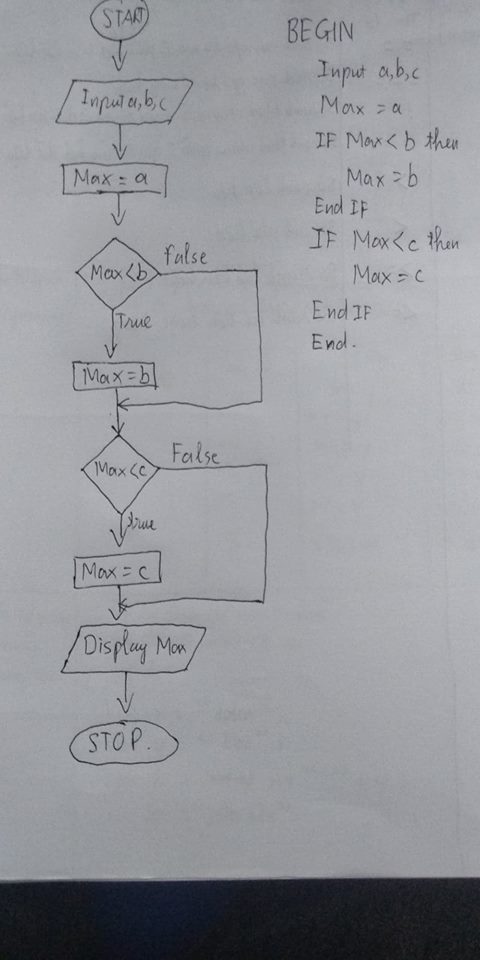 START
Input a,b,c
Max = a
Max < b
False
True
Max = b
Max < c
False
True
Max = c
Display Max
STOP.
BEGIN
Input a,b,c
Max = a
IF Max < b then
Max = b
End IF
IF Max < c then
Max = c
End IF
End.